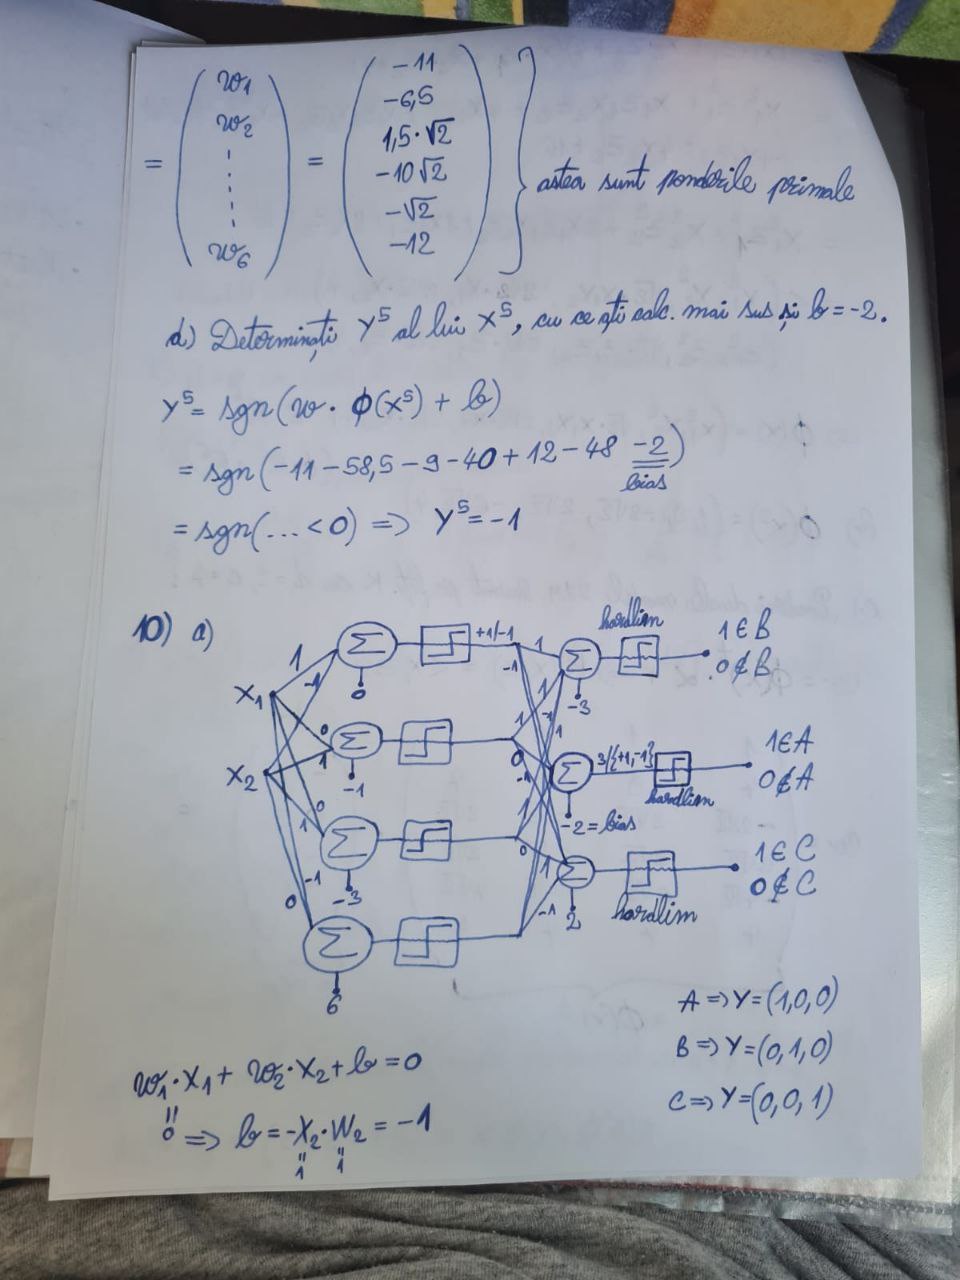 = ( w₁ w₂ ⋮ w₆ ) = ( -11 -6,5 1,5·√2 -10√2 -√2 -12 ) } astea sunt ponderile primale
d) Determinați Y⁵ al lui X⁵, cu ce ați calc. mai sus și b = -2.
Y⁵ = sgn(w · ϕ(x⁵) + b)
= sgn(-11 - 58,5 - 9 - 40 + 12 - 48 -2)
bias
= sgn(... < 0) => Y⁵ = -1
10) a)
X₁
X₂
1
-1
0
1
0
1
-1
0
Σ
0
Σ
-1
Σ
-3
Σ
6
+1/-1
1
-1
1
-1
1
1
0
-1
1
0
1
-1
Σ
-3
hardlim
1 ∈ B
0 ∉ B
Σ
3/{+1,-1}
-2 = bias
hardlim
1 ∈ A
0 ∉ A
Σ
2
hardlim
1 ∈ C
0 ∉ C
A => Y = (1,0,0)
B => Y = (0,1,0)
C => Y = (0,0,1)
w₁·X₁ + w₂·X₂ + b = 0
"
0 => b = -X₂·W₂ = -1
" "
1 1